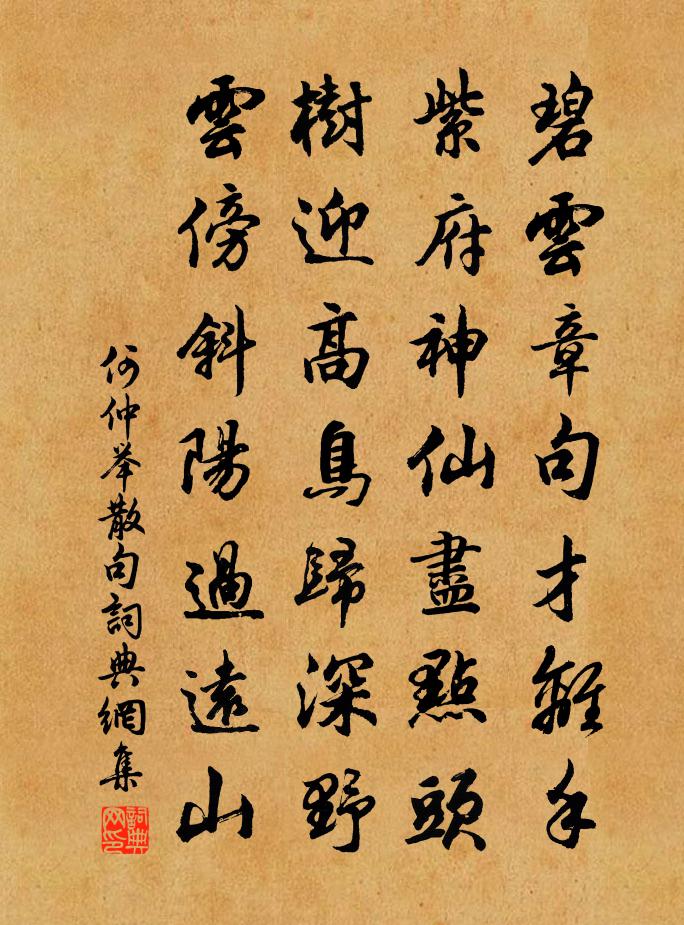 碧雲章句才離手
紫府神仙盡點頭
樹迎高鳥歸深野
雲傍斜陽過遠山
何仲举散句詞典網集
詞典网印